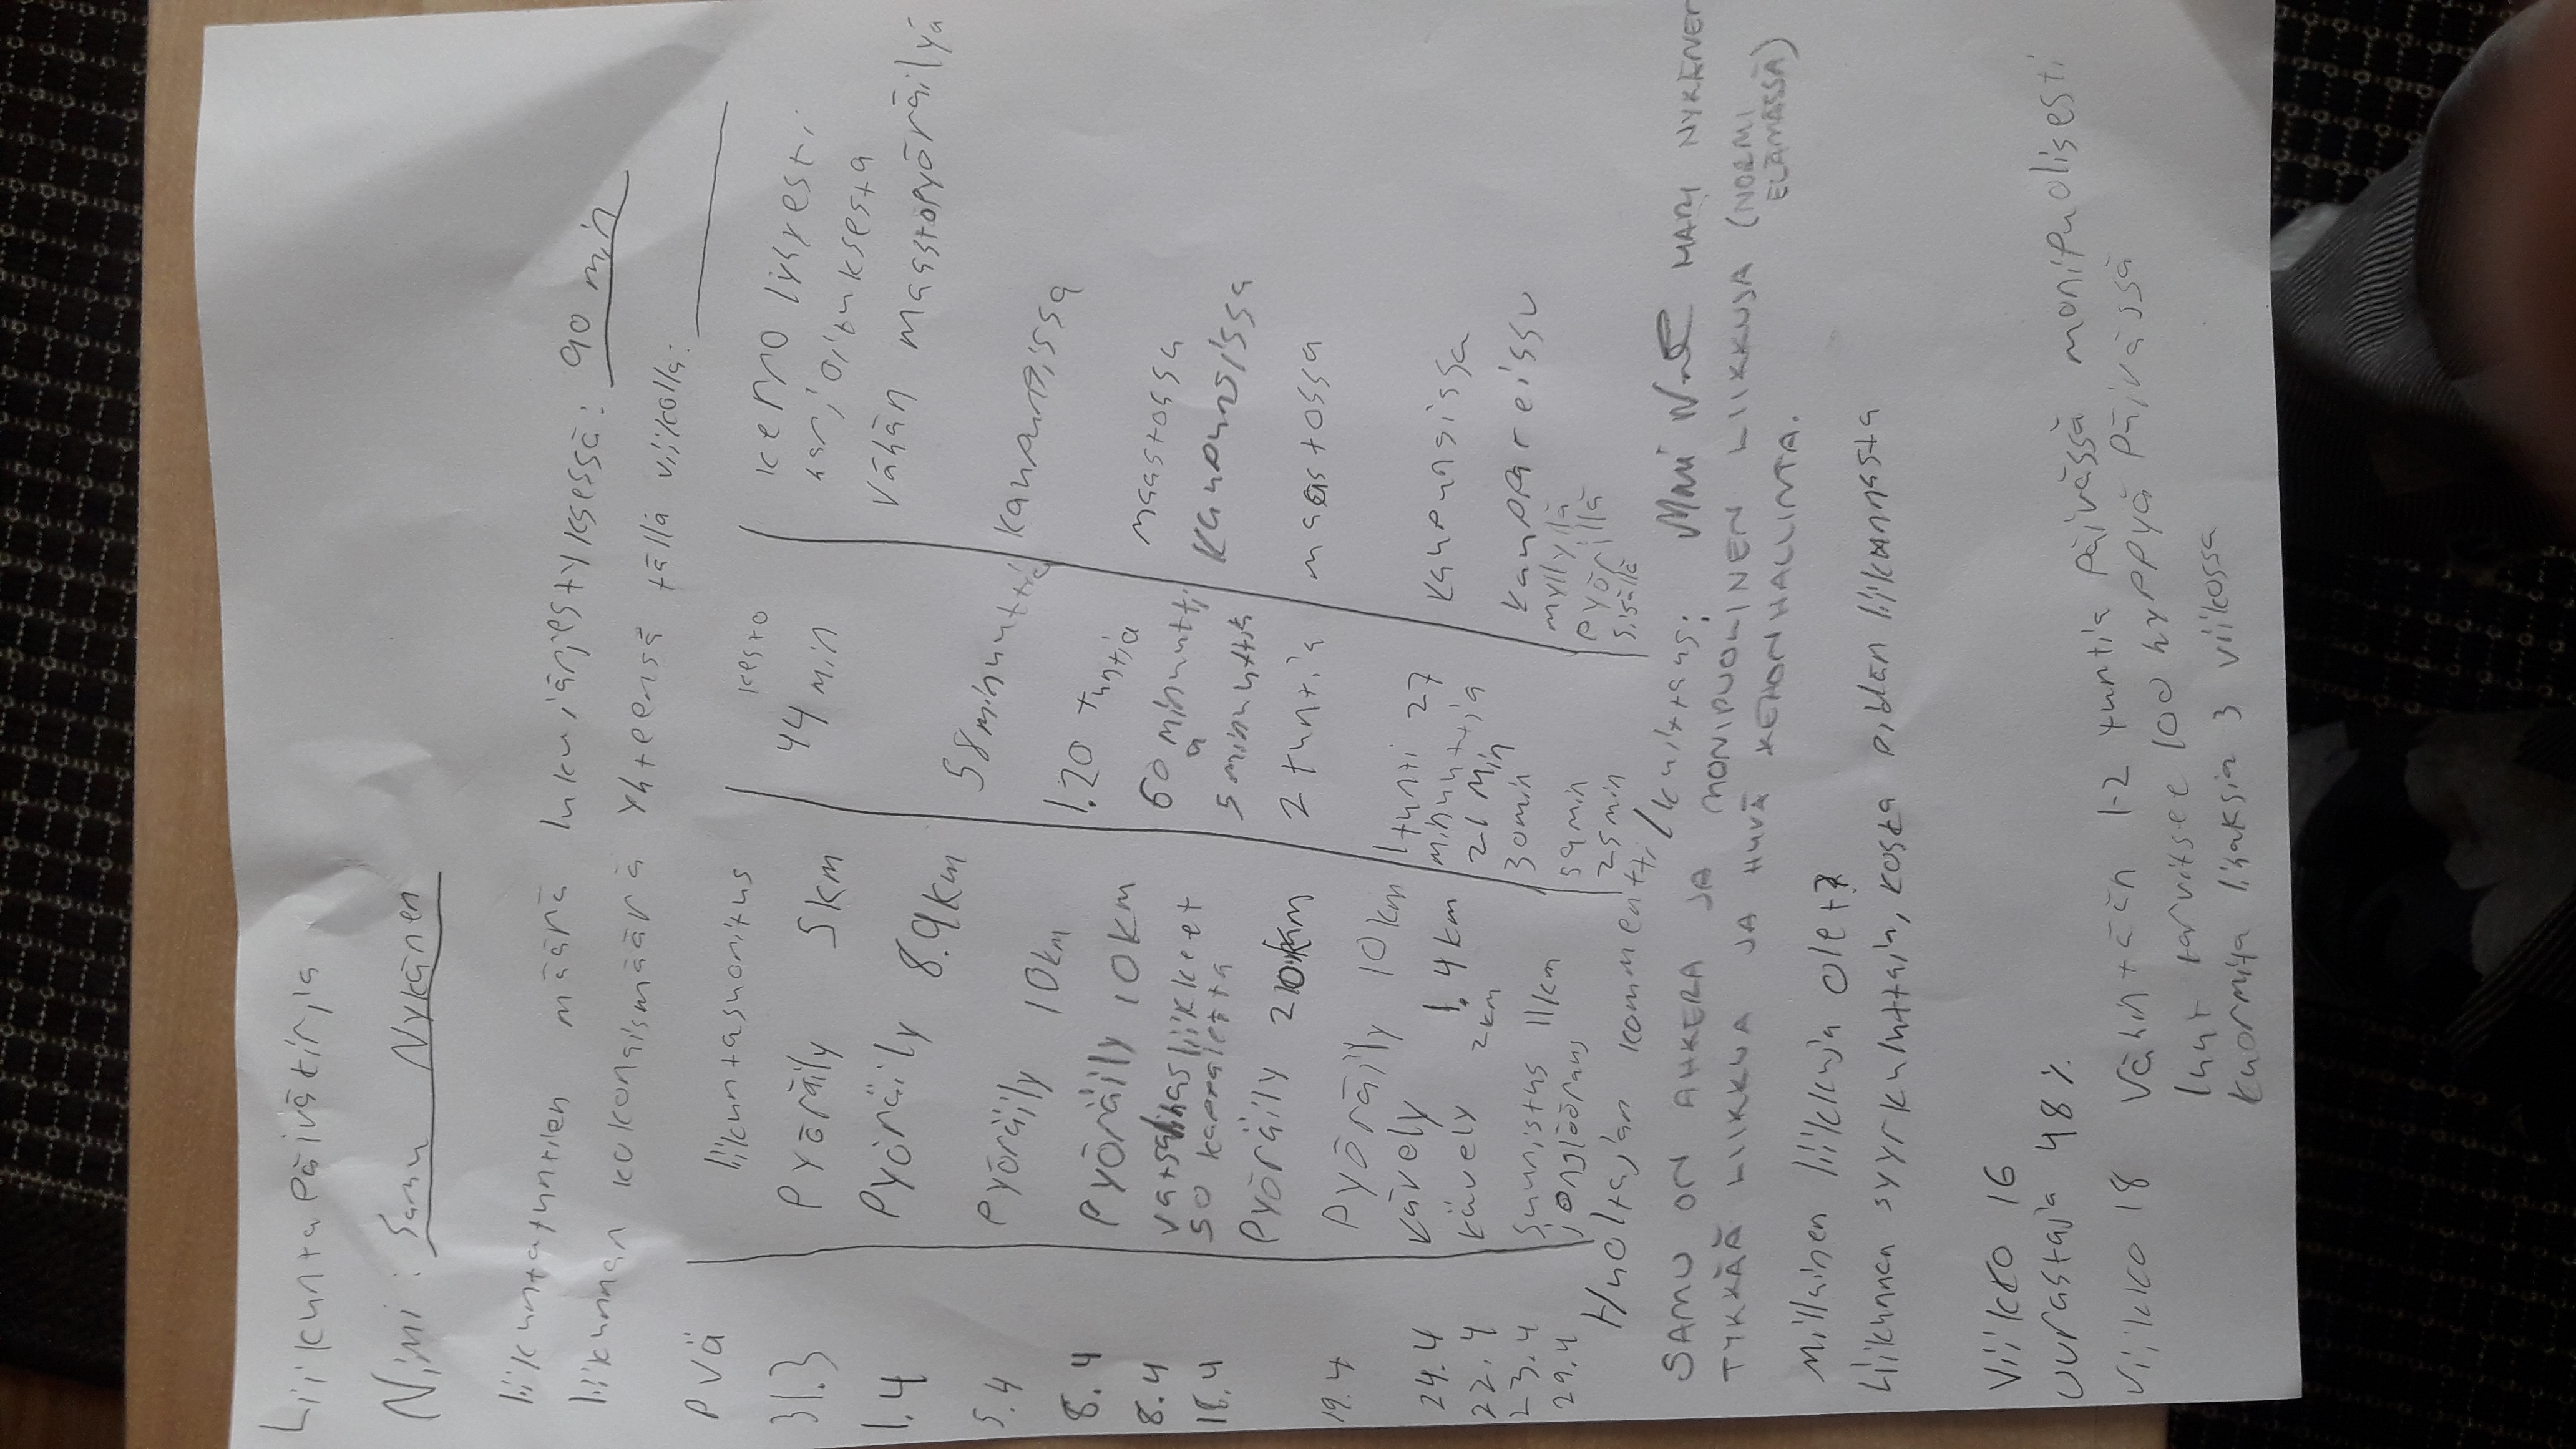 Liikuntapäiväkirja
Nimi: Samu Nykänen
liikuntatuntien määrä lukujärjestyksessä: 90 min
liikunnan kokonaismäärä yhteensä tällä viikolla:
pvä liikuntasuoritus kesto kerro lyhyesti harjoituksesta
31.3 Pyöräily 5km 44 min vähän maastopyöräilyä
1.4 Pyöräily 8.9km 58 minuuttia kaupungissa
5.4 Pyöräily 10km 1.20 tuntia maastossa
8.4 Pyöräily 10km 60 minuuttia kaupungissa
8.4 vatsalihasliikkeet 50 kappaletta 5 minuuttia
18.4 Pyöräily 20km 2 tuntia maastossa
19.4 Pyöräily 10km 1 tunti 27 minuuttia kaupungissa
24.4 kävely 1.4km 21 min kauppareissu
22.4 kävely 2km 30min myllyllä
23.4 Suunnistus 11km 59min pyörillä
29.4 jonglööraus 25min sisällä
Huoltajan kommentti/kuittaus: MARI NYKÄNEN
SAMU ON AHKERA JA MONIPUOLINEN LIIKKUJA (NORMI ELÄMÄSSÄ)
TYKKÄÄ LIIKKUA JA HYVÄ KEHONHALLINTA.
Millainen liikkuja olet?
Liikunnen syyrkuluttain, koska pidän liikunnasta
Viikko 16
uurastaja 48%
Viikko 18 Vähintään 1-2 tuntia päivässä monipuolisesti
luut tarvitsee 100 hyppyä päivässä
kuormita lihaksia 3 viikossa